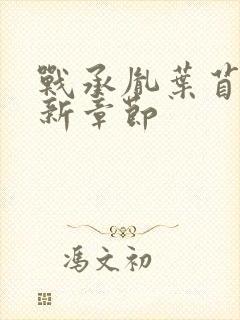 戰承胤葉苜
新章節
馮文初